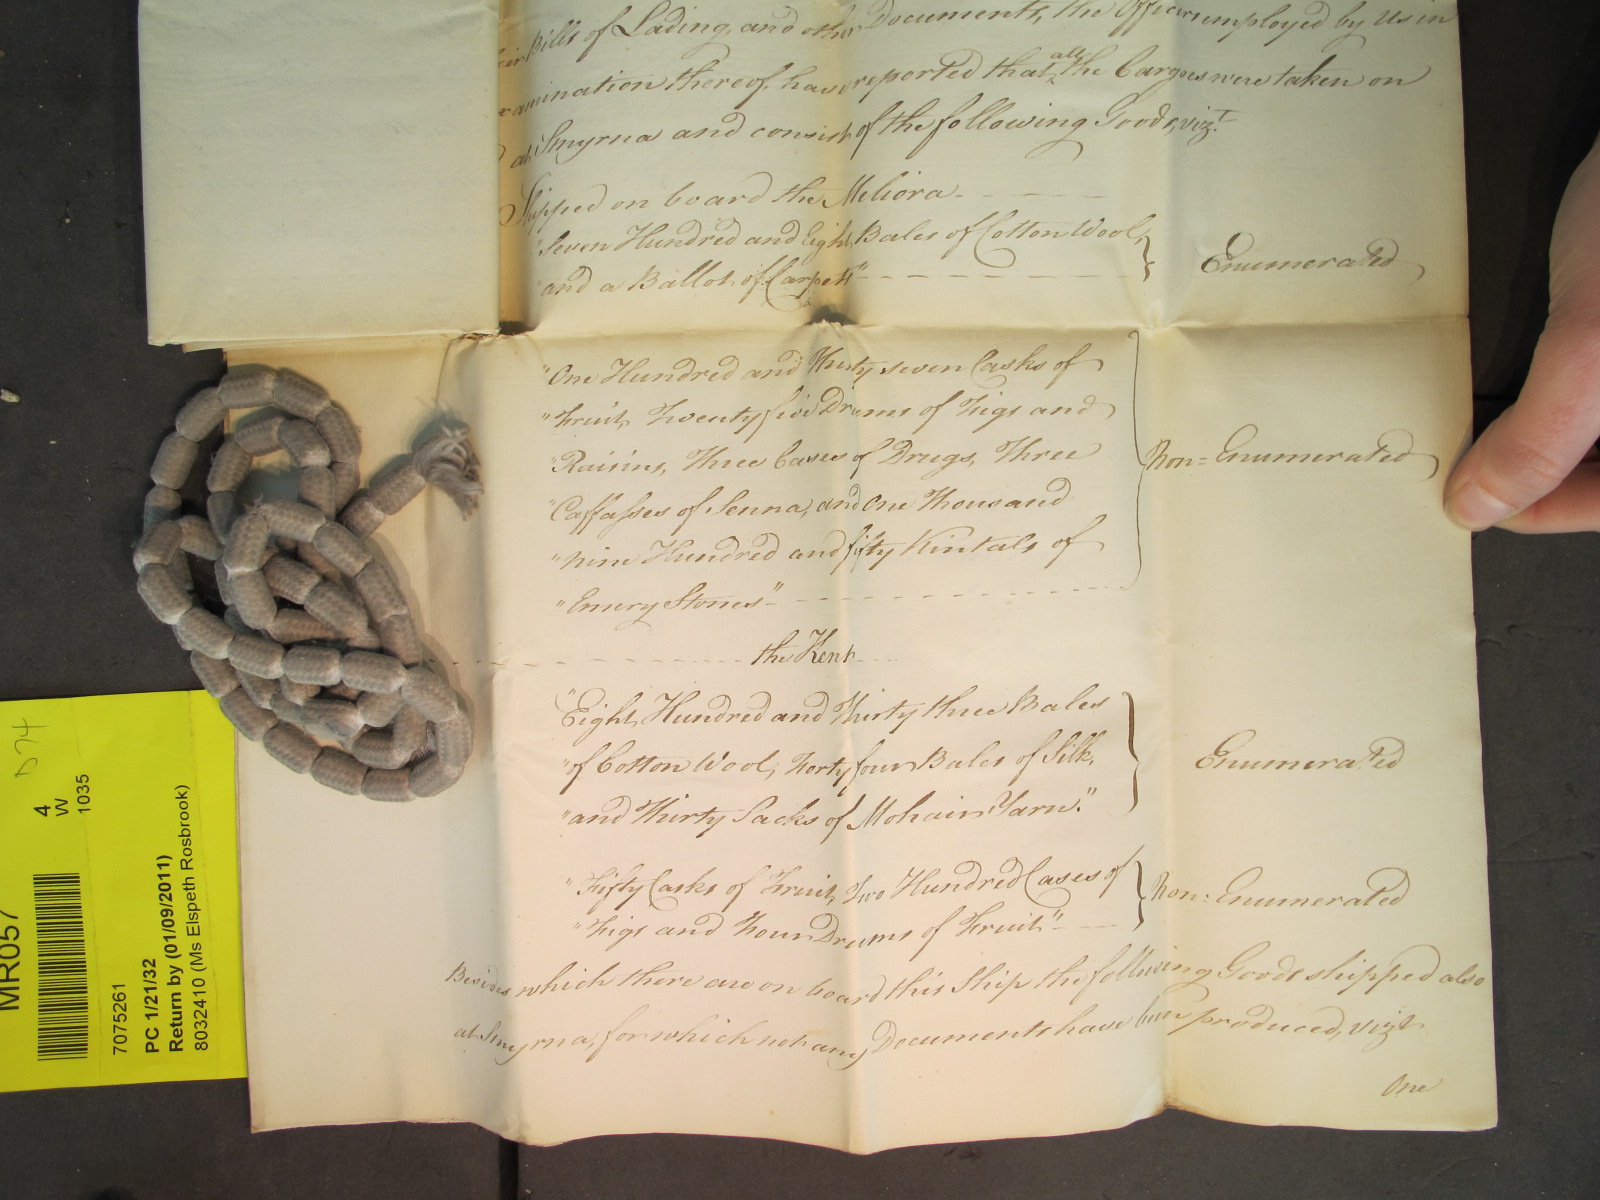 Bills of Lading, and other Documents, the Officers employed by Us in
amination thereof, have reported that all the Cargoes were taken on
at Smyrna and consist of the following Goods, vizt
Shipped on board the Meliora
"Seven Hundred and Eight Bales of Cotton Wool,
"and a Ballot of Carpets"
Enumerated
"One Hundred and Thirty seven Casks of
"Fruit, Twenty five Drums of Figs and
"Raisins, Three Cases of Drugs, Three
"Caffasses of Senna, and One Thousand
"nine Hundred and fifty Kintals of
"Emery Stones"
Non=Enumerated
the Kent
"Eight Hundred and Thirty three Bales
"of Cotton Wool, Forty four Bales of Silk,
"and Thirty Sacks of Mohair Yarn."
Enumerated
"Fifty Casks of Fruit, Two Hundred Cases of
"Figs and Four Drums of Fruit"
Non=Enumerated
Besides which there are on board this Ship the following Goods shipped also
at Smyrna, for which not any Documents have been produced, vizt
One
D74
4
W
1035
MR057
7075261
PC 1/21/32
Return by (01/09/2011)
8032410 (Ms Elspeth Rosbrook)